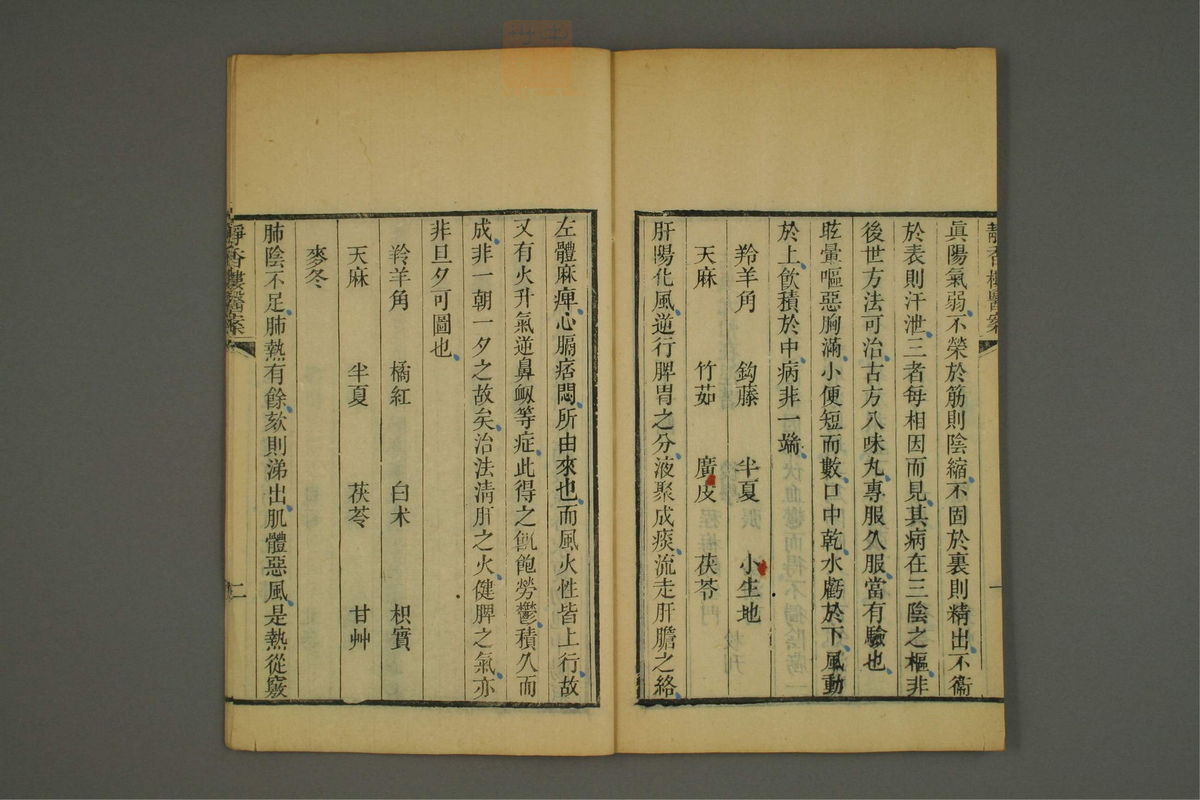 靜香樓醫案
一
眞陽氣弱不榮於筋則陰縮不固於裏則精出不衞
於表則汗泄三者每相因而見其病在三陰之樞非
後世方法可治古方八味丸專服久服當有驗也
眩暈嘔惡胸滿小便短而數口中乾水虧於下風動
於上飲積於中病非一端
羚羊角 鈎藤 半夏 小生地
天麻 竹茹 廣皮 茯苓
肝陽化風逆行脾胃之分液聚成痰流走肝膽之絡
左體麻痺心膈痞悶所由來也而風火性皆上行故
又有火升氣逆鼻衄等症此得之飢飽勞鬱積久而
成非一朝一夕之故矣治法清肝之火健脾之氣亦
非旦夕可圖也
羚羊角 橘紅 白朮 枳實
天麻 半夏 茯苓 甘艸
麥冬
肺陰不足肺熱有餘欬則涕出肌體惡風是熱從竅
靜香樓醫案
二